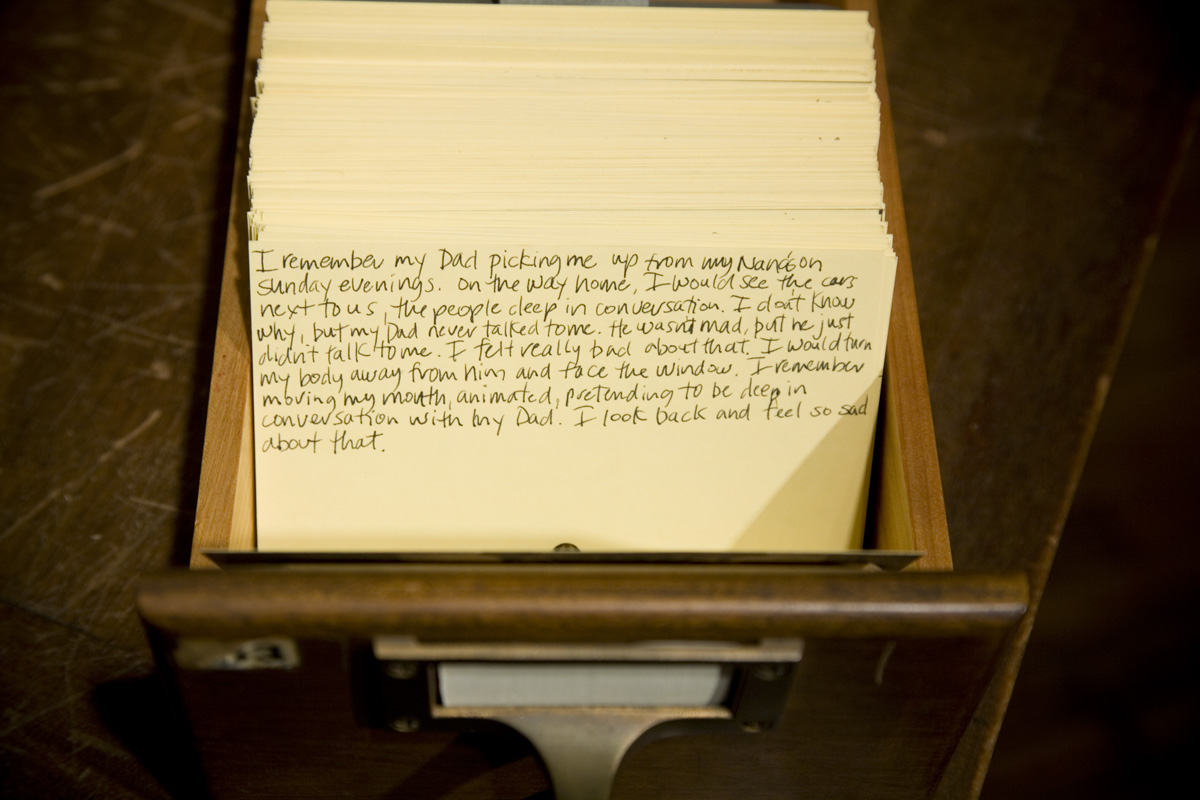 I remember my Dad picking me up from my Nana's on
sunday evenings. on the way home, I would see the cars
next to us, the people deep in conversation. I don't know
why, but my Dad never talked to me. He wasn't mad, but he just
didn't talk to me. I felt really bad about that. I would turn
my body away from him and face the window. I remember
moving my mouth, animated, pretending to be deep in
conversation with my Dad. I look back and feel so sad
about that.